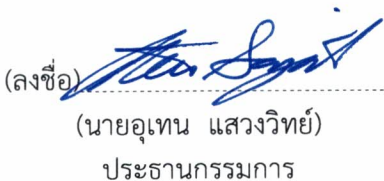 (ลงชื่อ)
(นายอุเทน แสวงวิทย์)
ประธานกรรมการ